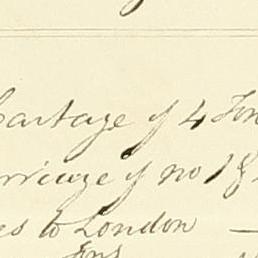 Cartage of 4 Ton
rriage of no 18
es to London